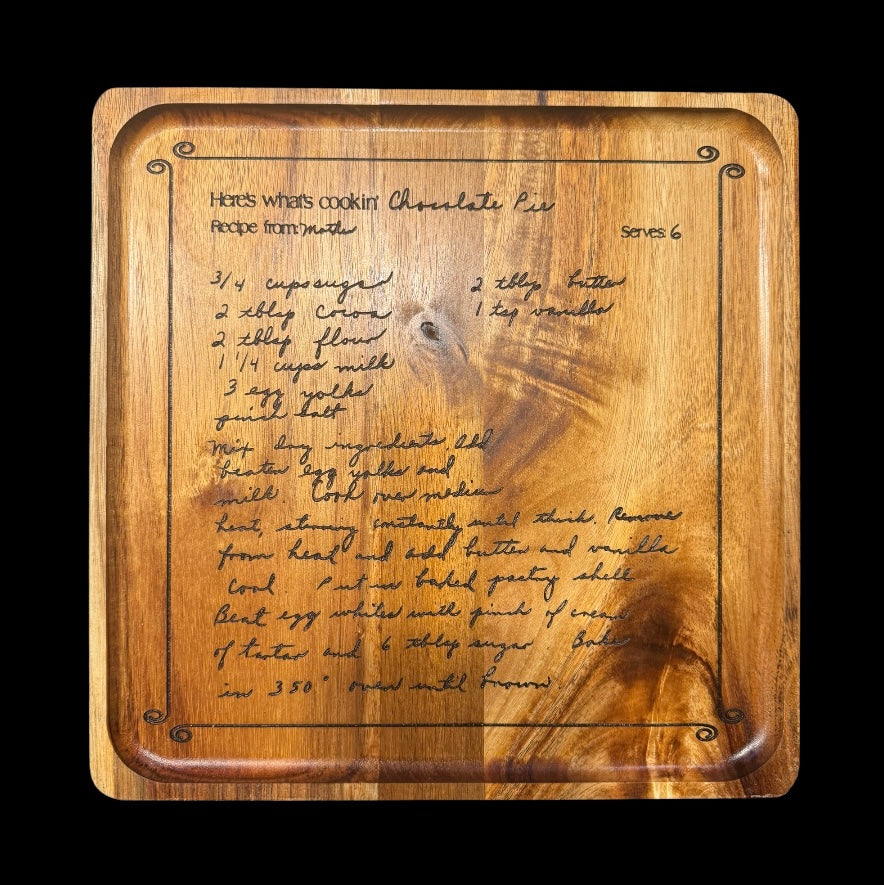 Here's what's cookin' Chocolate Pie
Recipe from: Mother Serves: 6
3/4 cups sugar 2 tblsp butter
2 tblsp Cocoa 1 tsp vanilla
2 tblsp flour
1 1/4 cups milk
3 egg yolks
pinch salt
Mix dry ingredients, Add
beaten egg yolks and
milk. Cook over medium
heat, stirring constantly until thick. Remove
from heat and add butter and vanilla
Cool. Put in baked pastry shell
Beat egg whites with pinch of cream
of tartar and 6 tblsp sugar. Bake
in 350° oven until brown.